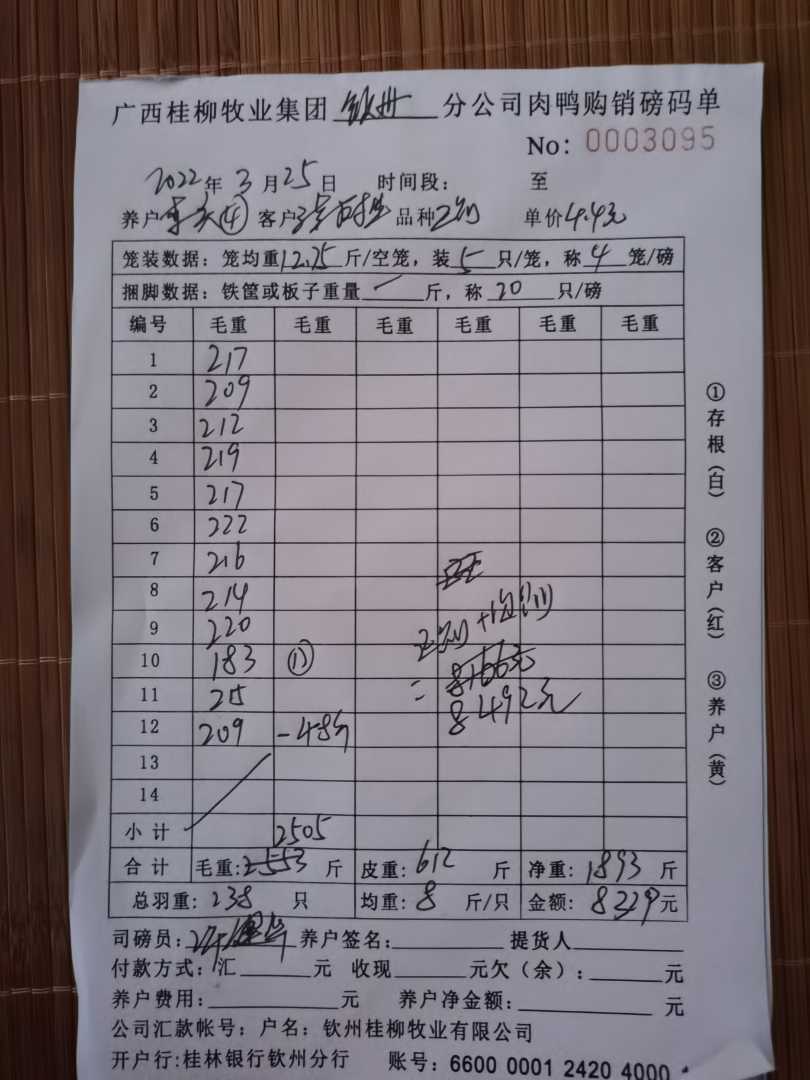 广西桂柳牧业集团 钦州 分公司肉鸭购销磅码单
No: 0003095
2022年3月25日 时间段: 至
养户 ④ 客户 品种 单价4.4元
笼装数据: 笼均重12.75斤/空笼, 装5只/笼, 称4笼/磅
捆脚数据: 铁筐或板子重量 — 斤, 称20只/磅
编号 毛重 毛重 毛重 毛重 毛重 毛重
1 217
2 209
3 212
4 219
5 217
6 222
7 216
8 214
9 220
10 183 ①
11 215
12 209 -48斤
13
14
= 8166元
8492元
小计 2505
合计 毛重:2553斤 皮重:612斤 净重:1893斤
总羽重:238只 均重:8斤/只 金额:8329元
司磅员: 养户签名: 提货人
付款方式:汇 元 收现 元欠(余): 元
养户费用: 元 养户净金额: 元
公司汇款帐号: 户名: 钦州桂柳牧业有限公司
开户行:桂林银行钦州分行 账号: 6600 0001 2420 4000
①存根(白) ②客户(红) ③养户(黄)